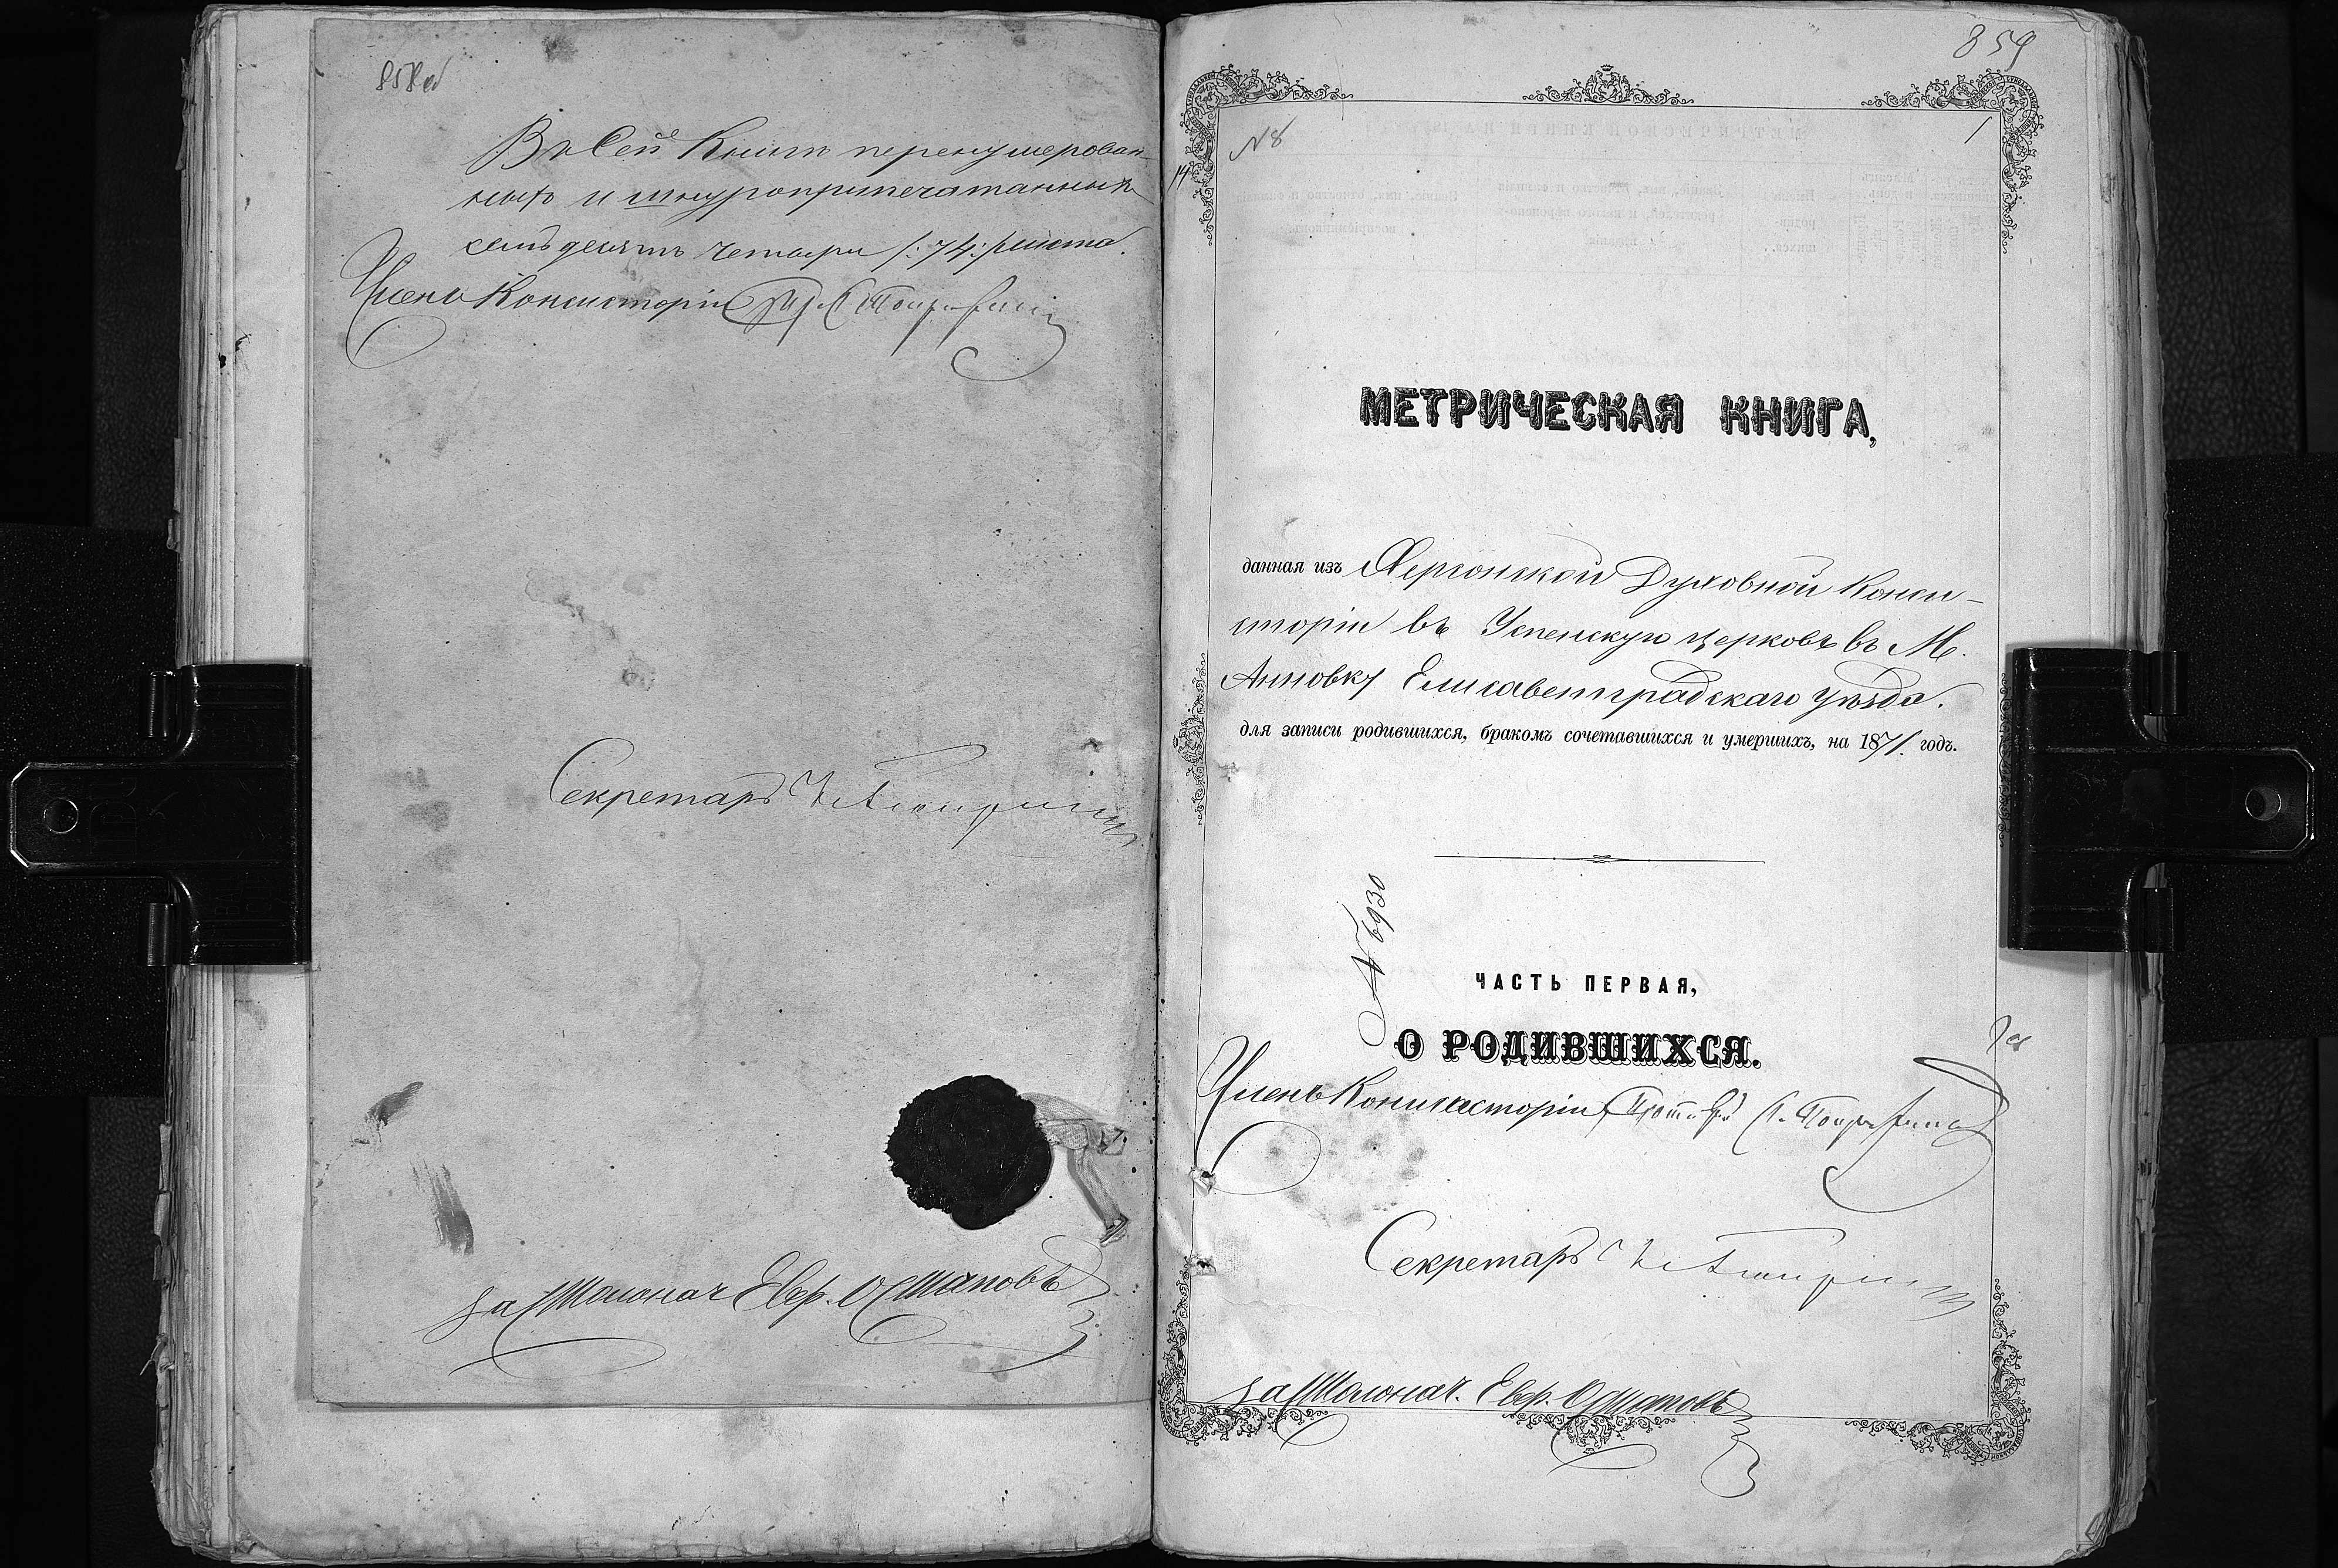 858 об
Въ сей Книги перенумерован-
ныхъ и шнуроприпечатанныхъ
семъдесятъ четыри /:74:/ листа.
Членъ Консисторіи
Секретарь
за Столонач Евф. Осташовъ
859
№8
1
14
МЕТРИЧЕСКАЯ КНИГА,
данная изъ Херсонской Духовной Конси-
сторіи въ Успенскую церковь въ М.
Анновку Елисаветградскаго уѣзда.
для записи родившихся, бракомъ сочетавшихся и умершихъ, на 1871. годъ.
№ 6930
ЧАСТЬ ПЕРВАЯ,
О РОДИВШИХСЯ.
Членъ Консисторіи
Секретарь
за Столонач. Евф.